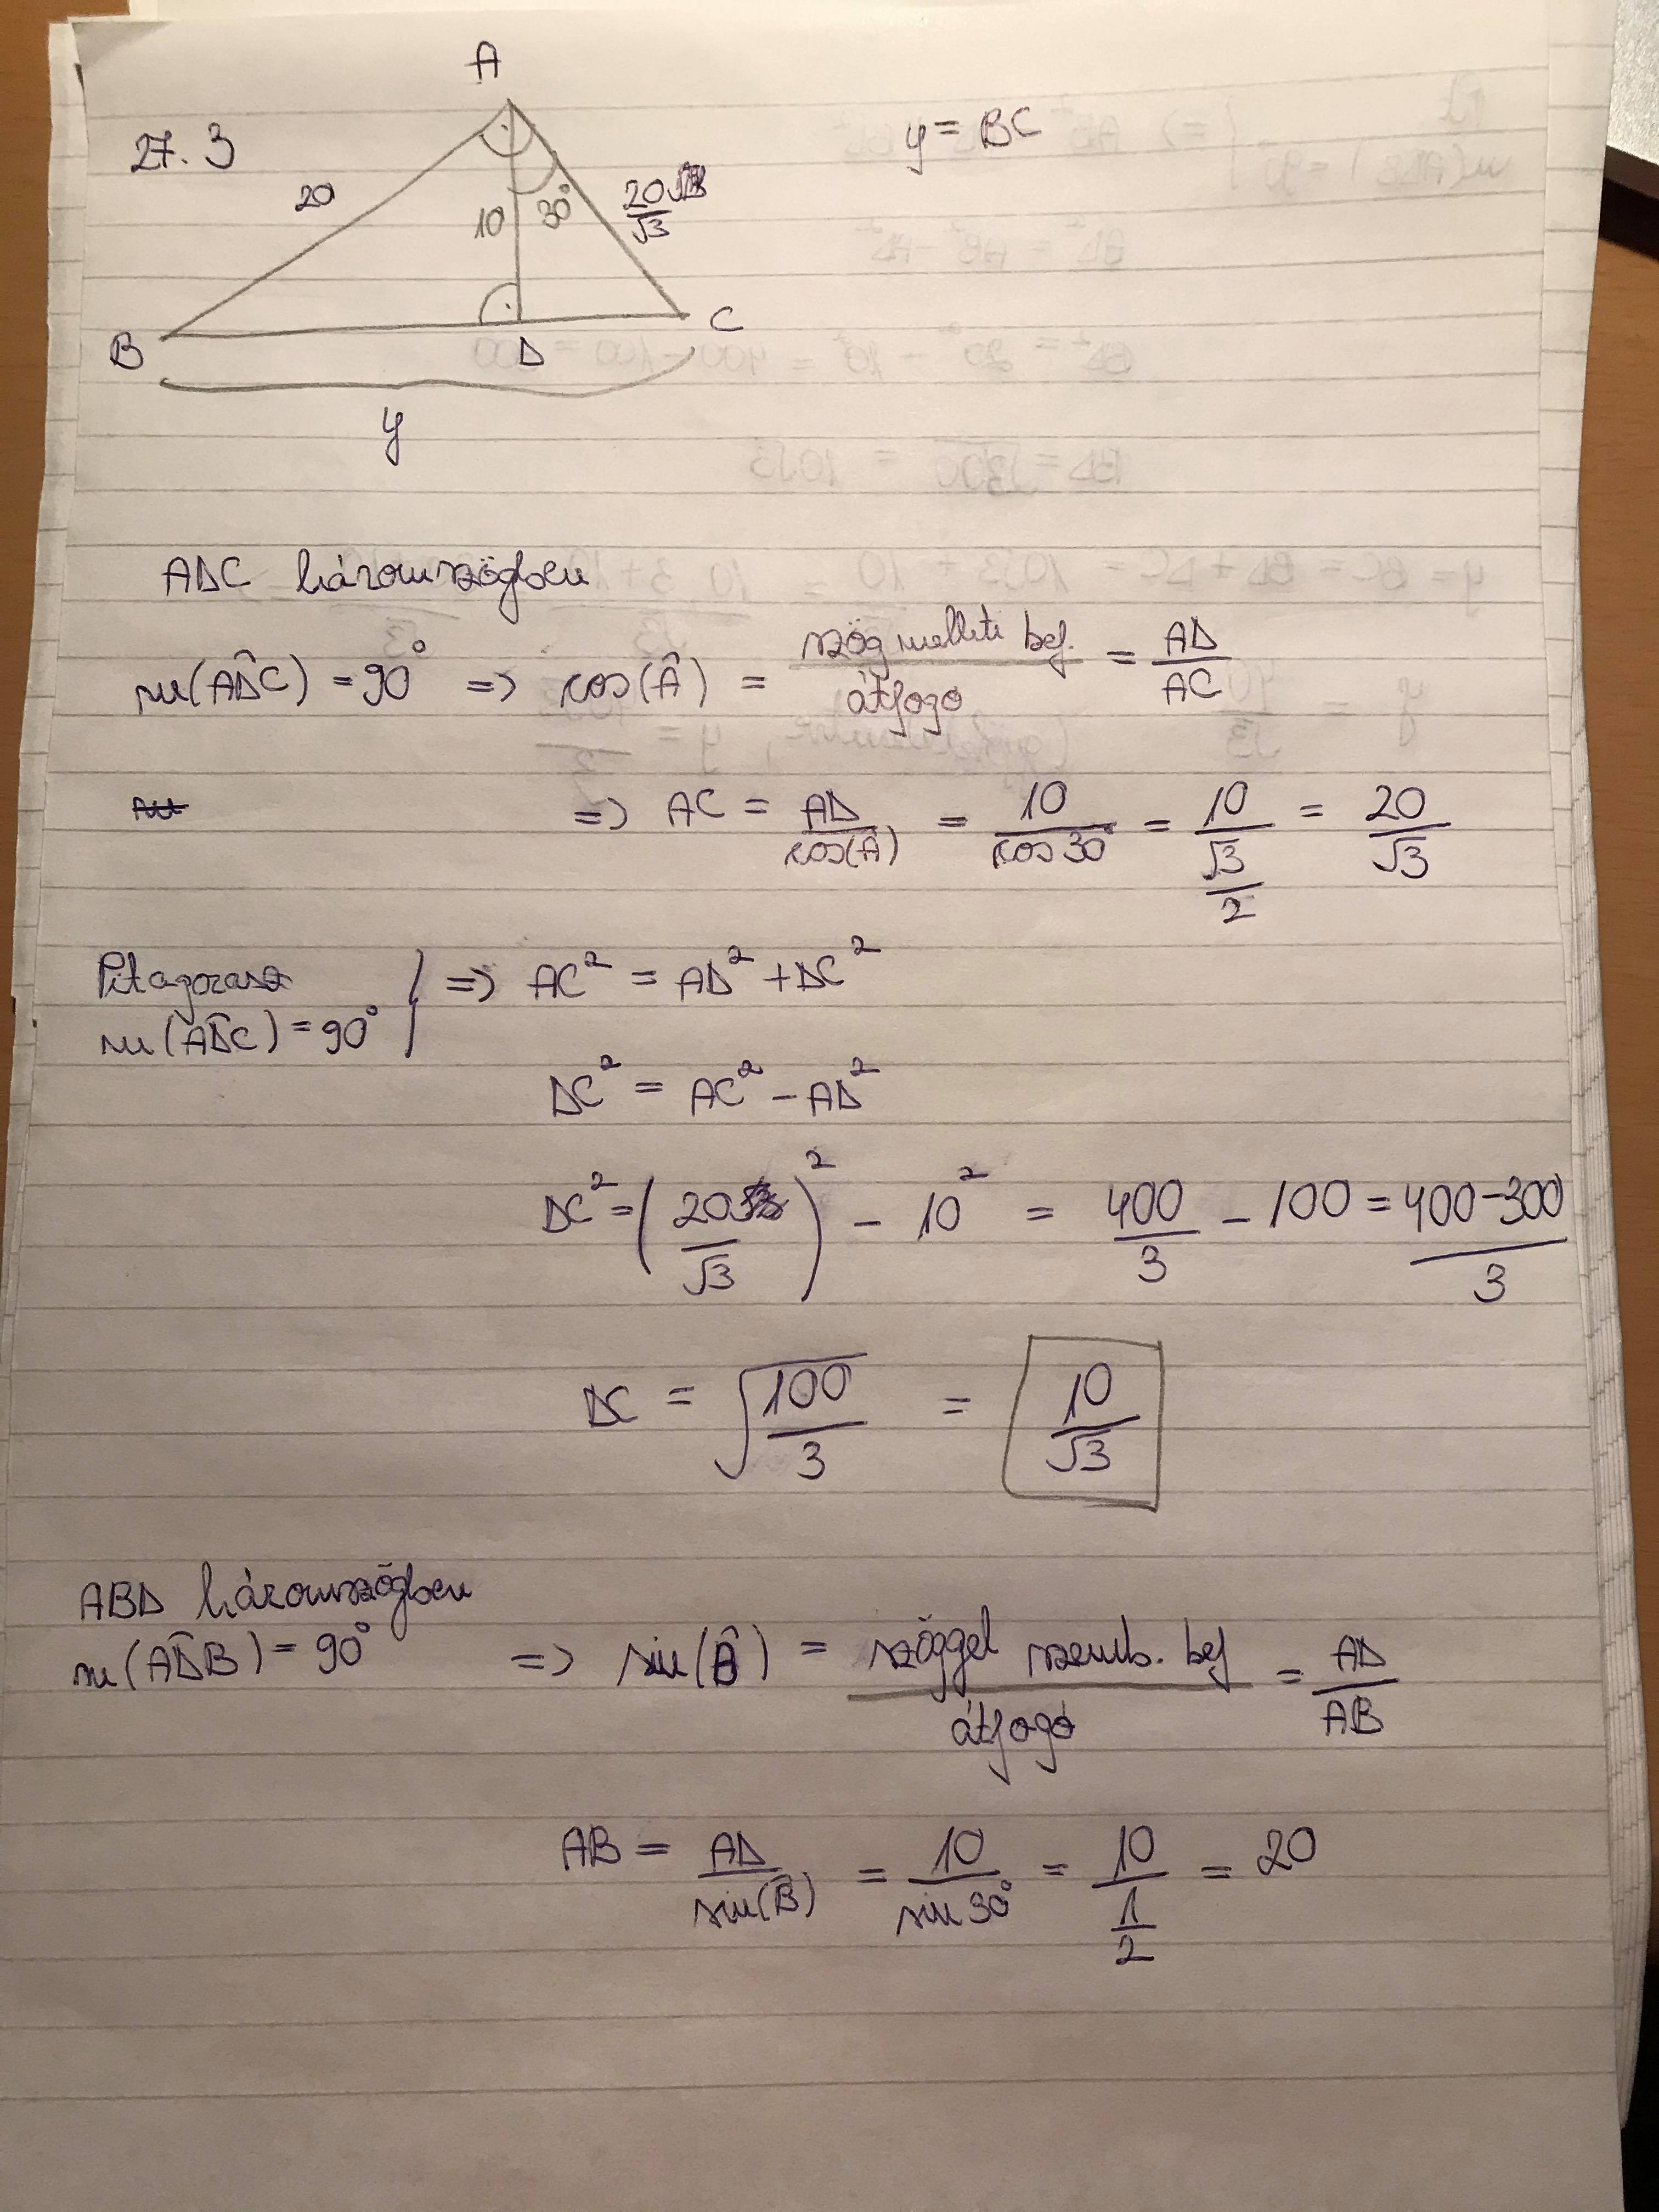 A
27. 3
y = BC
20
10
30°
20
√3
B
D
C
y
ADC háromszögben
m(ADC) = 90° => cos(Â) = szög melleti bef. / átfogó = AD / AC
=> AC = AD / cos(Â) = 10 / cos 30° = 10 / (√3 / 2) = 20 / √3
Pitagorasz
m(ADC) = 90° => AC² = AD² + DC²
DC² = AC² - AD²
DC² = (20 / √3)² - 10² = 400 / 3 - 100 = 400 - 300 / 3
DC = √(100 / 3) = 10 / √3
ABD háromszögben
m(ADB) = 90° => sin(B̂) = szöggel szemb. bef / átfogó = AD / AB
AB = AD / sin(B) = 10 / sin 30° = 10 / (1 / 2) = 20